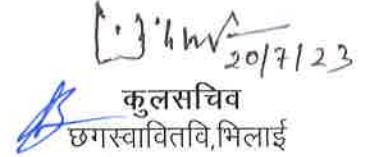 20/7/23
कुलसचिव
छगस्वावितवि,भिलाई